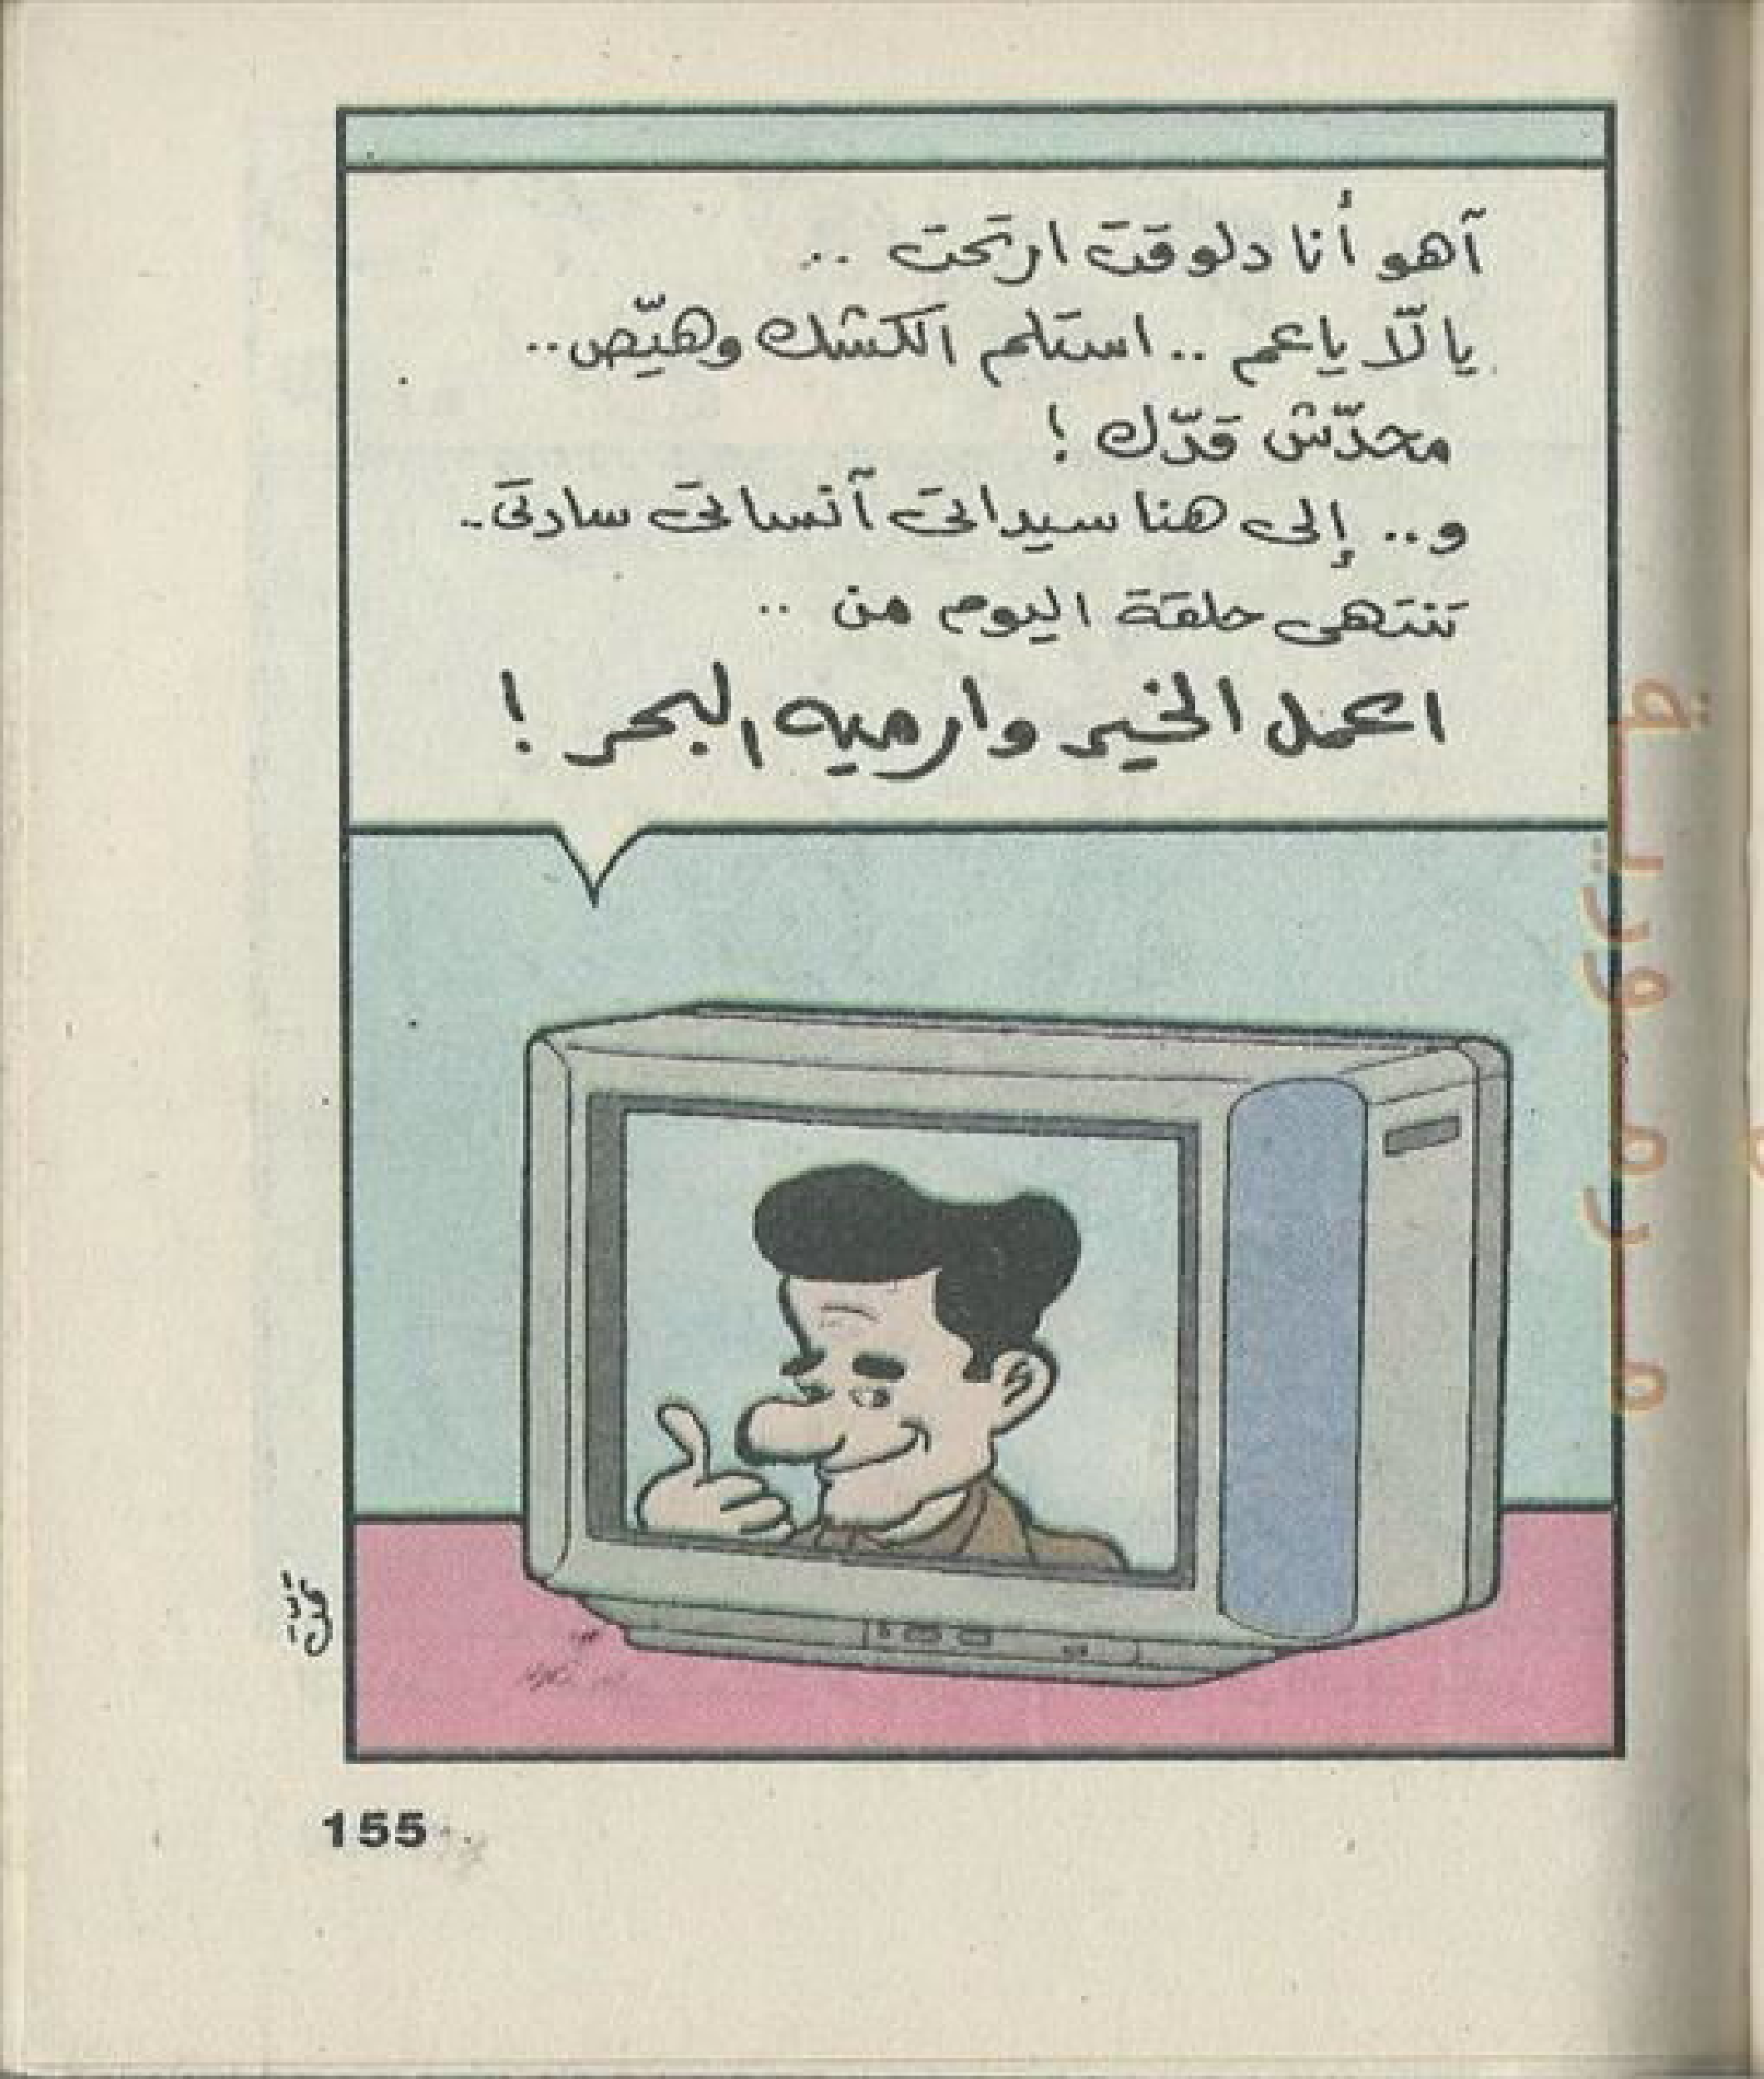 آهو أنا دلوقت ارتحت ..
يالّا ياعم .. استلم الكشك وهيّص ..
محدّش قدّك !
و.. إلى هنا سيداتى آنساتى سادتى ..
تنتهى حلقة اليوم من ..
اعمل الخير وارميه البحر !
155